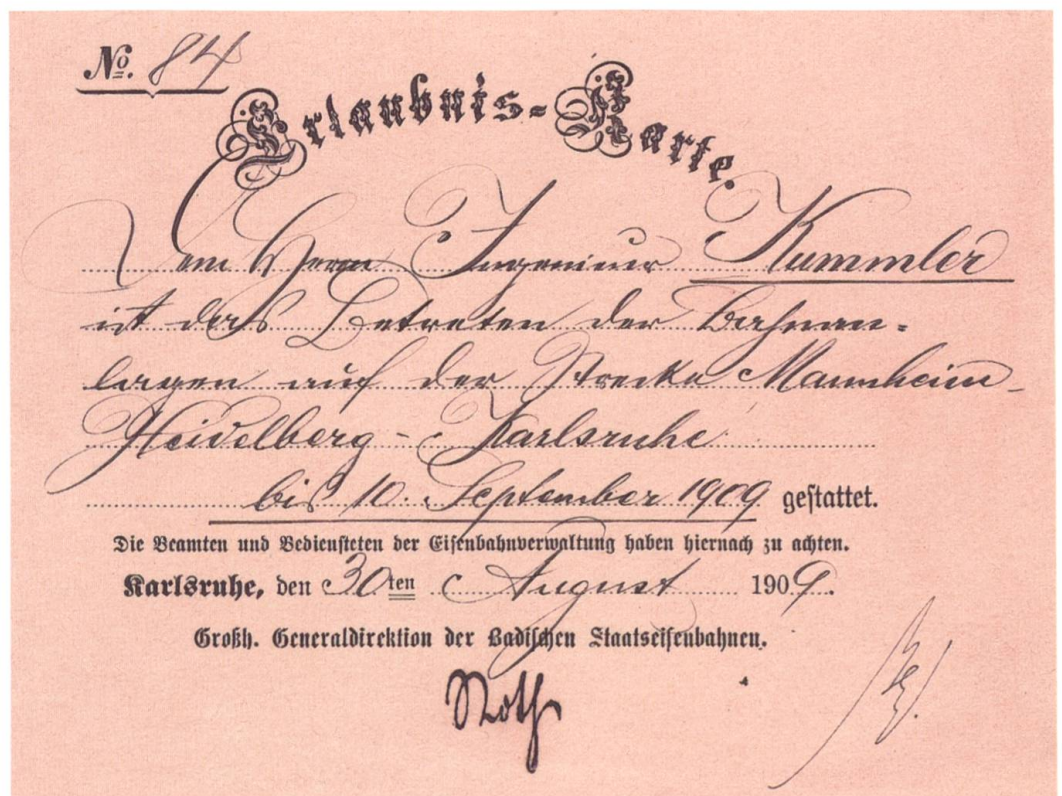 No. 84
Erlaubnis-Karte.
Dem Herrn Ingenieur Kummler
ist das Betreten der Bahnan-
lagen auf der Strecke Mannheim-
Heidelberg - Karlsruhe
bis 10. September 1909 gestattet.
Die Beamten und Bediensteten der Eisenbahnverwaltung haben hiernach zu achten.
Karlsruhe, den 30ten August 1909.
Großh. Generaldirektion der Badischen Staatseisenbahnen.
Roth